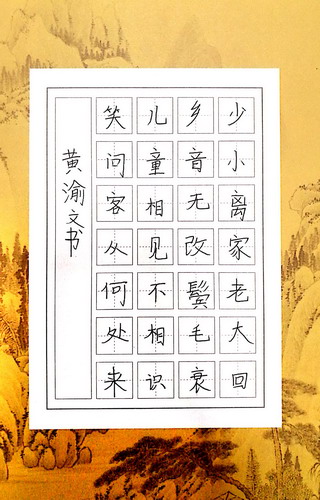 少小离家老大回
乡音无改鬓毛衰
儿童相见不相识
笑问客从何处来
黄渝文书